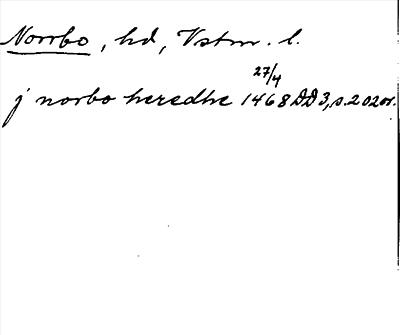 Norrbo, hd, Vstm. l.
j norbo heredhe 1468 27/4 DD3, s. 202 or.